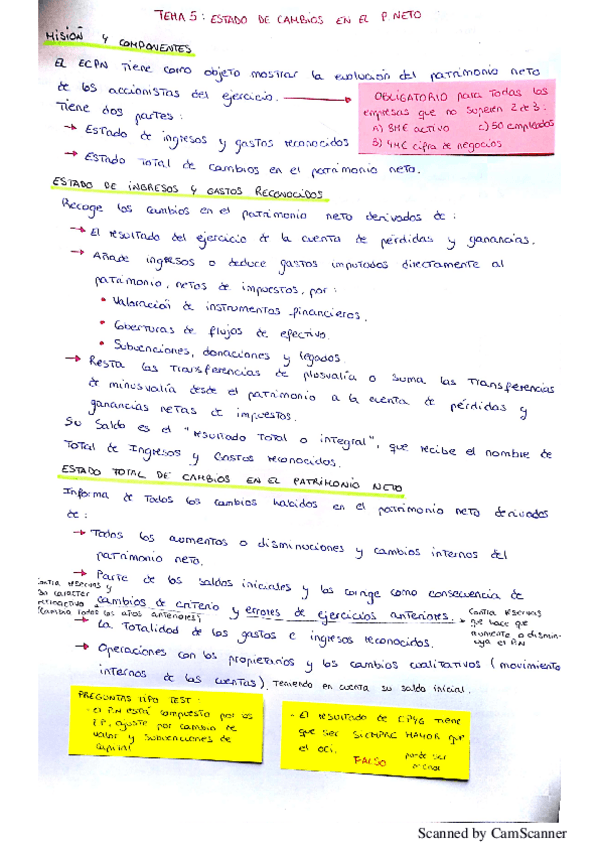 TEMA 5: ESTADO DE CAMBIOS EN EL P NETO
MISIÓN Y COMPONENTES
EL ECPN Tiene como objeto mostrar la evolución del patrimonio neto
de los accionistas del ejercicio.
Tiene dos partes:
→ Estado de ingresos y gastos reconocidos
→ Estado Total de cambios en el patrimonio neto.
OBLIGATORIO para Todas las
empresas que no superen 2 de 3:
a) 8M€ activo c) 50 empleados
b) 4M€ cifra de negocios
ESTADO DE INGRESOS Y GASTOS RECONOCIDOS
Recoge los cambios en el patrimonio neto derivados de:
→ El resultado del ejercicio de la cuenta de pérdidas y ganancias.
→ Añade ingresos o deduce gastos imputados directamente al
patrimonio, netos de impuestos, por:
• Valoración de instrumentos financieros.
• Coberturas de flujos de efectivo.
• Subvenciones, donaciones y legados.
→ Resta las Transferencias de plusvalía o suma las Transferencias
de minusvalía desde el patrimonio a la cuenta de pérdidas y
ganancias netas de impuestos.
Su Saldo es el "resultado Total o integral", que recibe el nombre de
Total de Ingresos y Gastos reconocidos.
ESTADO TOTAL DE CAMBIOS EN EL PATRIMONIO NETO
Informa de Todos los cambios habidos en el patrimonio neto derivados
de:
→ Todos los aumentos o disminuciones y cambios internos del
patrimonio neto.
→ Parte de los saldos iniciales y los corrige como consecuencia de
cambios de criterio y errores de ejercicios anteriores.
contra reservas y
su carácter
retroactivo
(cambia todos los años anteriores)
contra reservas
que hace que
aumente o dismin-
uya el PN
→ La Totalidad de los gastos e ingresos reconocidos.
→ Operaciones con los propietarios y los cambios cualitativos (movimiento
internos de las cuentas), teniendo en cuenta su saldo inicial.
PREGUNTAS TIPO TEST:
- El PN está compuesto por los
FP, ajuste por cambio de
valor y subvenciones de
capital
- El resultado de CPyG tiene
que ser SIEMPRE MAYOR que
el oci.
FALSO puede ser
menor
Scanned by CamScanner